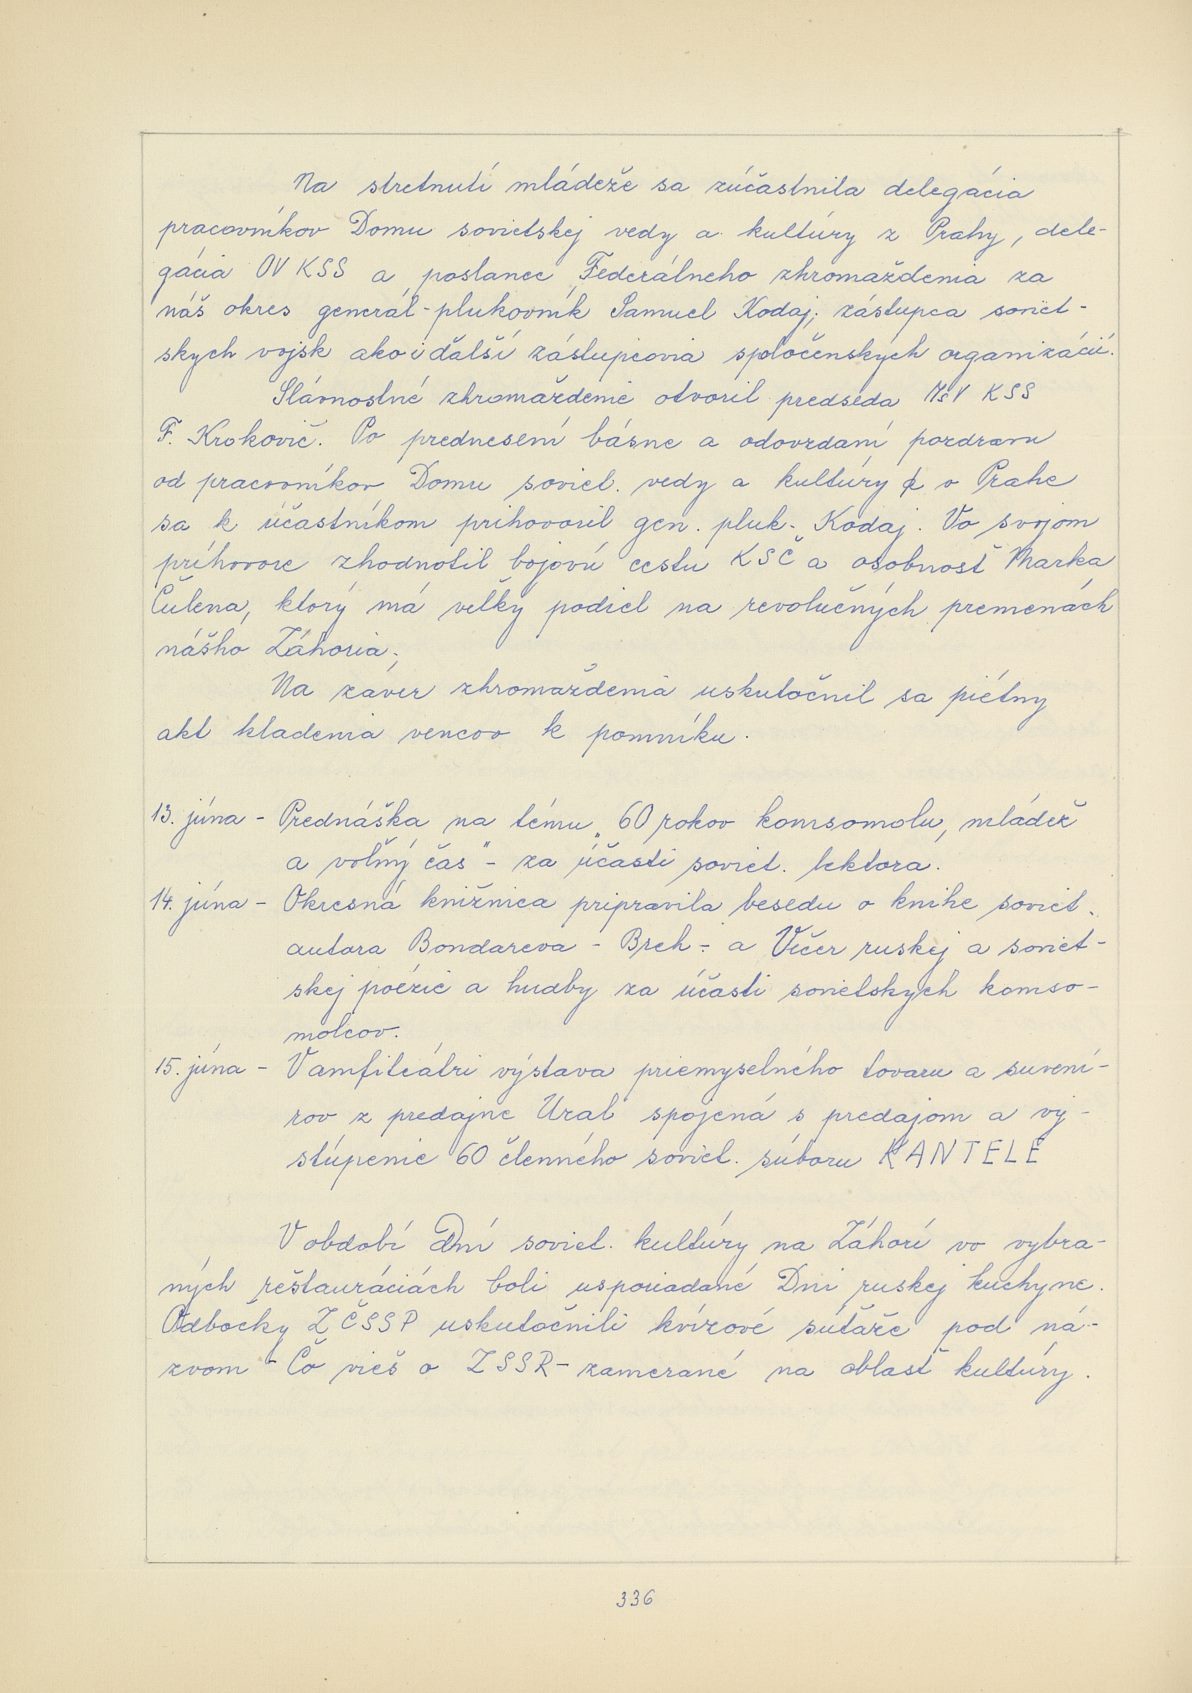 Na stretnutí mládeže sa zúčastnila delegácia
pracovníkov Domu sovietskej vedy a kultúry z Prahy, dele-
gácia OV KSS a poslanec Federálneho zhromaždenia za
náš okres generál-plukovník Samuel Kodaj, zástupca soviet-
skych vojsk ako i ďalší zástupcovia spoločenských organizácií.
Slávnostné zhromaždenie otvoril predseda MsV KSS
F. Krokovič. Po prednesení básne a odovzdaní pozdravu
od pracovníkov Domu soviet. vedy a kultúry v Prahe
sa k účastníkom prihovoril gen. pluk. Kodaj. Vo svojom
príhovore zhodnotil bojovú cestu KSČ a osobnosť Marka
Čulena, ktorý má veľký podiel na revolučných premenách
nášho Záhoria.
Na záver zhromaždenia uskutočnil sa piétny
akt kladenia vencov k pomníku.
13. júna - Prednáška na tému „60 rokov komsomolu, mládež
a voľný čas" - za účasti soviet. lektora.
14. júna - Okresná knižnica pripravila besedu o knihe soviet.
autora Bondareva - Breh - a Večer ruskej a soviet-
skej poézie a hudby za účasti sovietskych komso-
molcov.
15. júna - V amfiteátri výstava priemyselného tovaru a suvení-
rov z predajne Ural spojená s predajom a vy-
stúpenie 60 členného soviet. súboru KANTELE
V období Dní soviet. kultúry na Záhorí vo vybra-
ných reštauráciách boli usporiadané Dni ruskej kuchyne.
Odbočky ZČSSP uskutočnili kvízové súťaže pod ná-
zvom - Čo vieš o ZSSR - zamerané na oblasť kultúry.
336